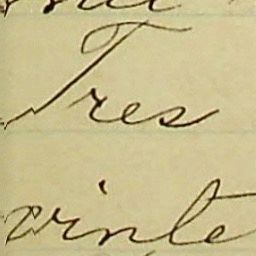 Tres
vinte